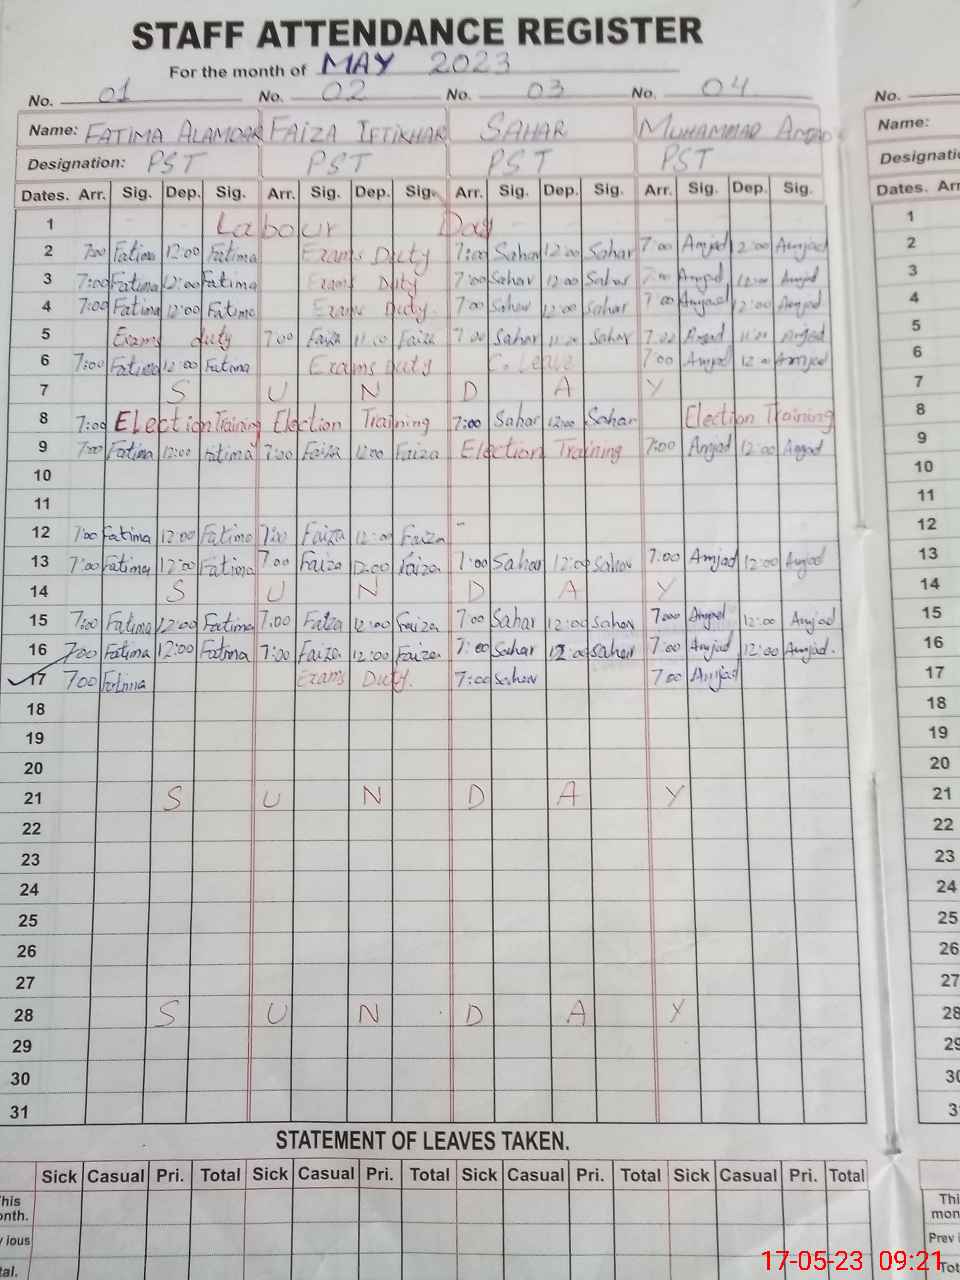 STAFF ATTENDANCE REGISTER
For the month of MAY 2023
No. 01 No. 02 No. 03 No. 04 No.
Name: FATIMA ALAMDAR FAIZA IFTIKHAR SAHAR MUHAMMAD AMJAD Name:
Designation: PST PST PST PST Designati
Dates. Arr. Sig. Dep. Sig. Arr. Sig. Dep. Sig. Arr. Sig. Dep. Sig. Arr. Sig. Dep. Sig. Dates. Arr
1 Labour Day 1
2 7:00 Fatima 12:00 Fatima Exams Duty 7:00 Sahar 12:00 Sahar 7:00 Amjad 12:00 Amjad 2
3 7:00 Fatima 12:00 Fatima Exams Duty 7:00 Sahar 12:00 Sahar 7:00 Amjad 12:00 Amjad 3
4 7:00 Fatima 12:00 Fatima Exams Duty. 7:00 Sahar 12:00 Sahar 7:00 Amjad 12:00 Amjad 4
5 Exams duty 7:00 Faiza Faiza 7:00 Sahar Sahar Amjad Amjad 5
6 7:00 Fatima 12:00 Fatima Exams Duty C. Leave 7:00 Amjad 12:00 Amjad 6
7 S U N D A Y 7
8 7:00 Election Training Election Training 7:00 Sahar 12:00 Sahar Election Training 8
9 7:00 Fatima 12:00 Fatima 7:00 Faiza 12:00 Faiza Election Training 7:00 Amjad 12:00 Amjad 9
10 10
11 11
12 7:00 Fatima 12:00 Fatima 7:00 Faiza 12:00 Faiza 12
13 7:00 Fatima 12:00 Fatima 7:00 Faiza 12:00 Faiza 7:00 Sahar 12:00 Sahar 7:00 Amjad 12:00 Amjad 13
14 S U N D A Y 14
15 7:00 Fatima 12:00 Fatima 7:00 Faiza 12:00 Faiza 7:00 Sahar 12:00 Sahar 7:00 Amjad 12:00 Amjad 15
16 7:00 Fatima 12:00 Fatima 7:00 Faiza 12:00 Faiza 7:00 Sahar 12:00 Sahar 7:00 Amjad 12:00 Amjad. 16
17 7:00 Fatima Exams Duty. 7:00 Sahar 7:00 Amjad 17
18 18
19 19
20 20
21 S U N D A Y 21
22 22
23 23
24 24
25 25
26 26
27 27
28 S U N D A Y 28
29 29
30 30
31
STATEMENT OF LEAVES TAKEN.
Sick Casual Pri. Total Sick Casual Pri. Total Sick Casual Pri. Total Sick Casual Pri. Total
his onth. Thi mon
ious Prev i
tal. Tot
17-05-23 09:21